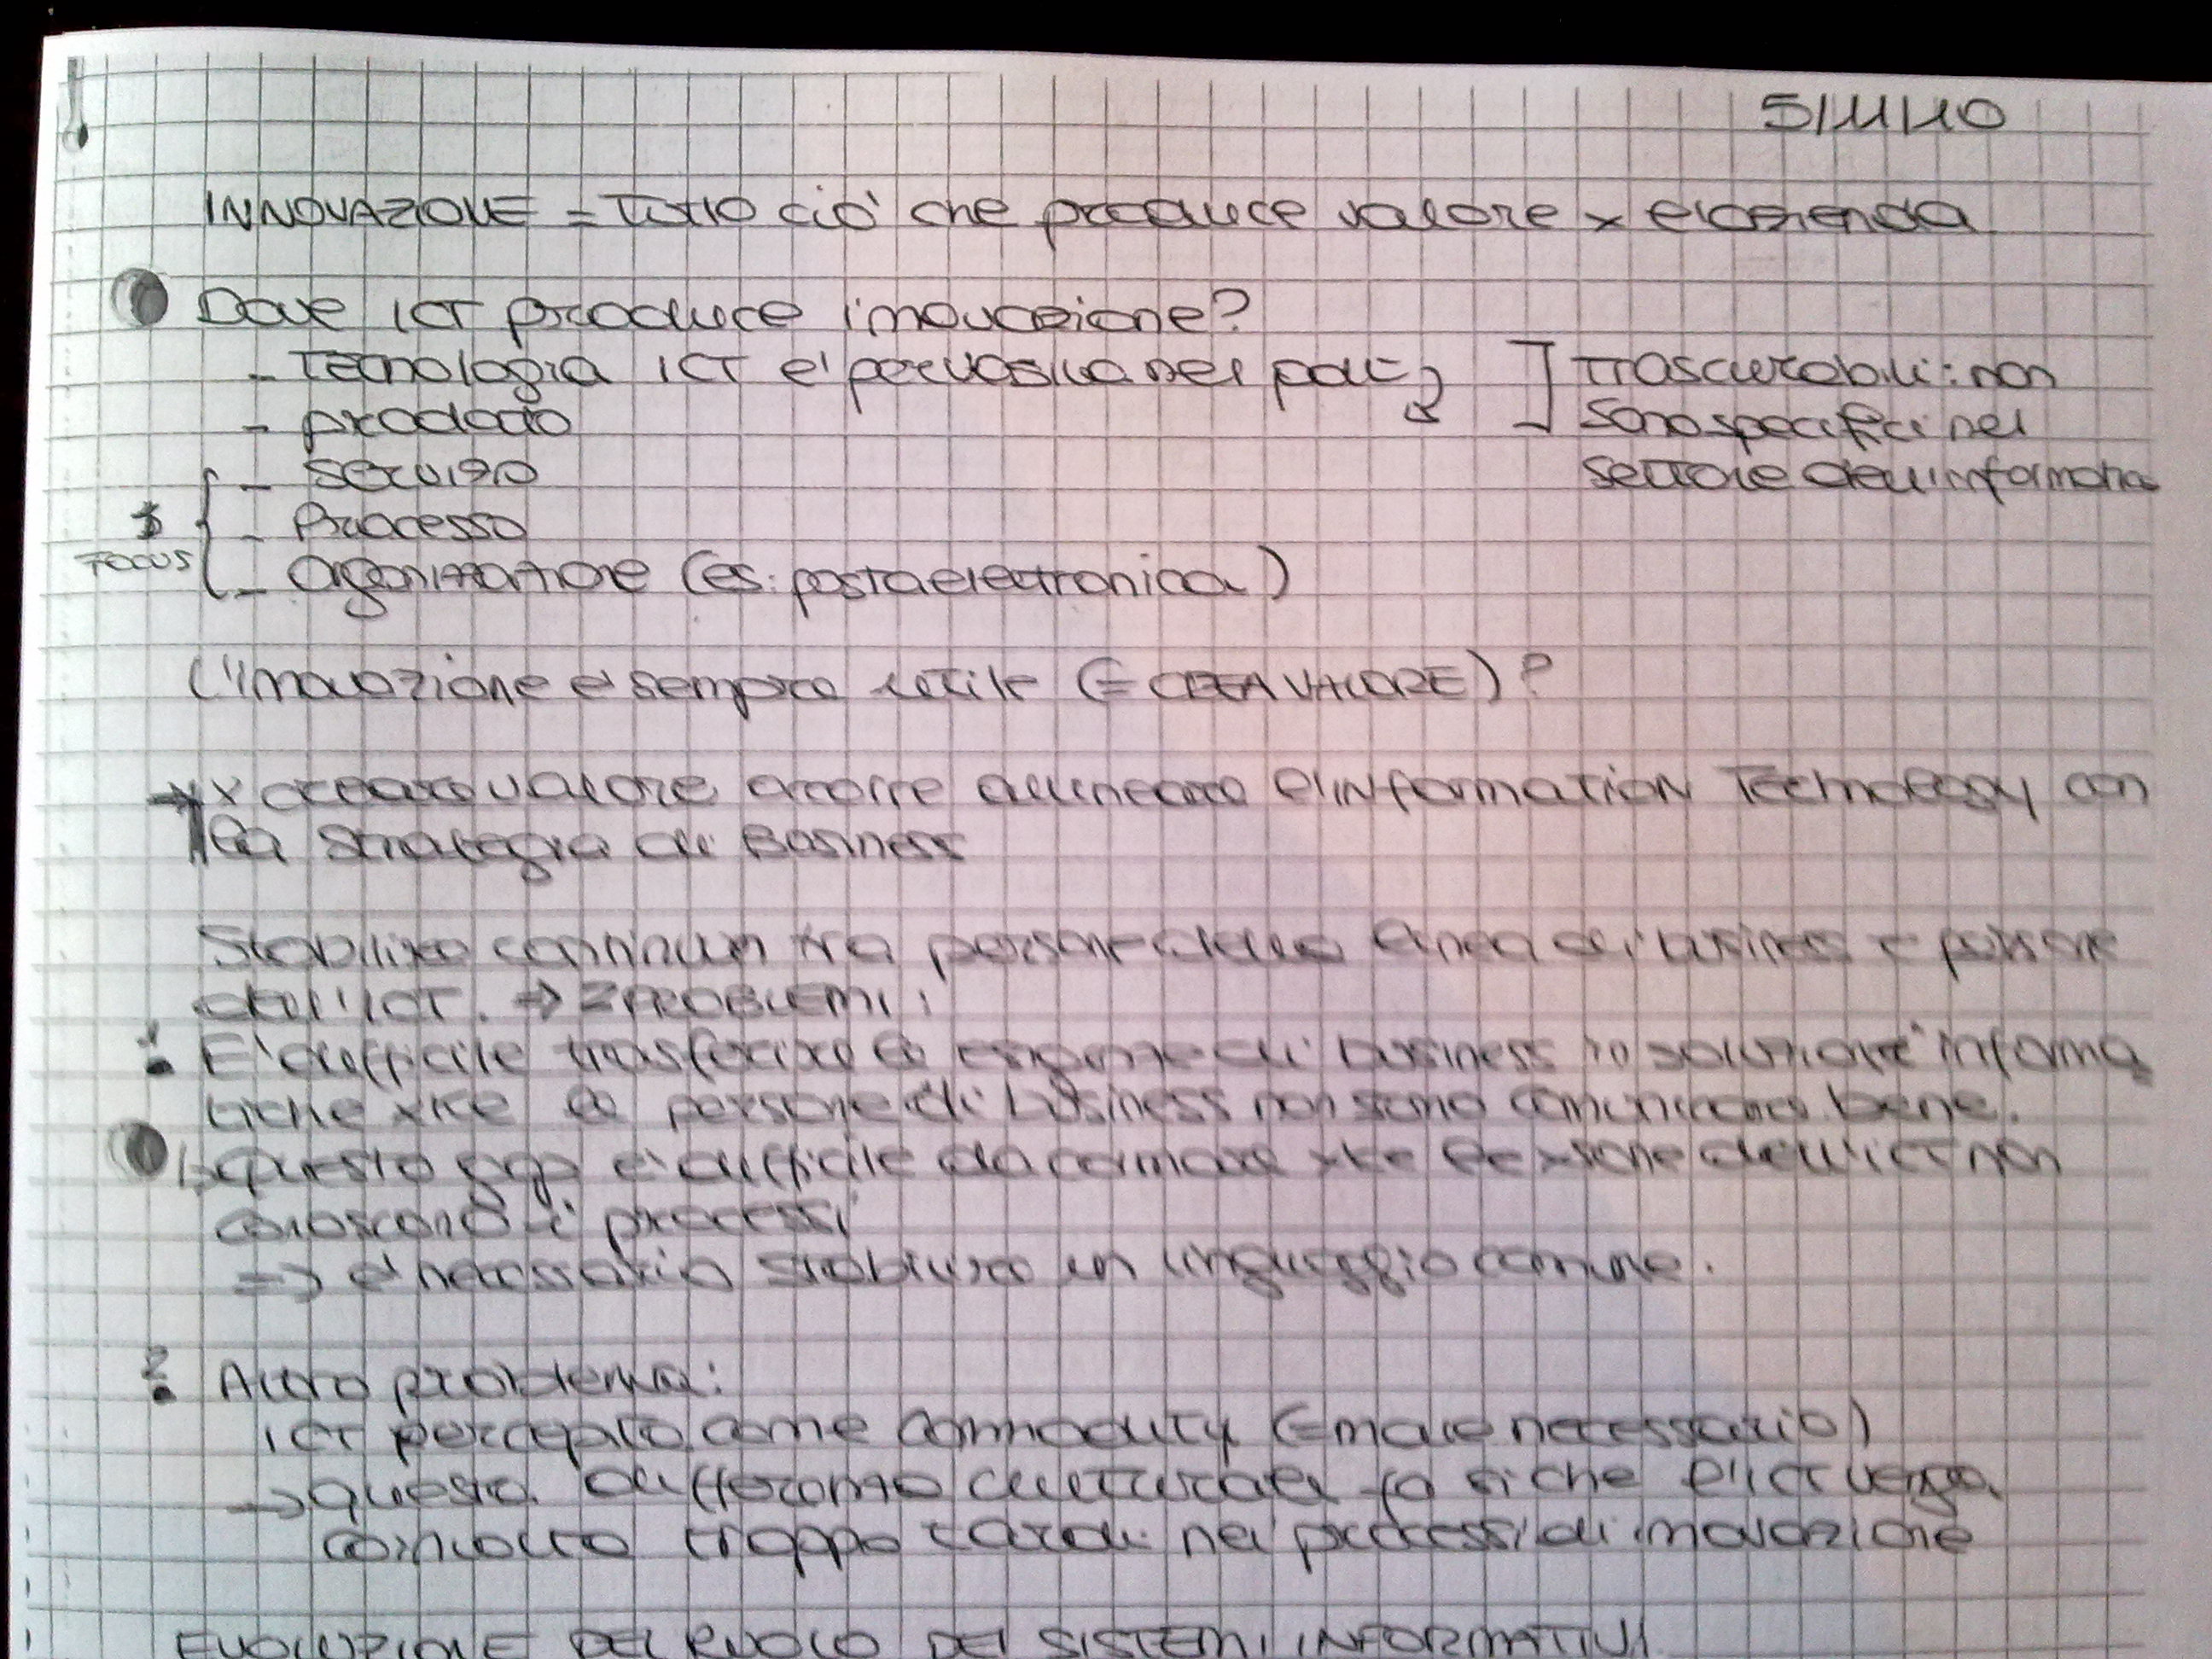 5/11/10
INNOVAZIONE = Tutto ciò che produce valore x l'azienda
Dove ICT produce innovazione?
- Tecnologia ICT e' pervasiva nei
- prodotto
] Trascurabili: non
sono specifici nel
settore dell'informatica
- servizio
- Processo
FOCUS
- Organizzazione (es: posta elettronica)
L'innovazione e' sempre utile (= CREA VALORE)?
→ x creare valore occorre allineare l'INformation Technology con
la strategia di Business
Stabilire continuum tra persone della linea di business e persone
dell'ICT. → 2 PROBLEMI:
1 • E' difficile trasferire le esigenze di business in soluzioni informa
tiche xke le persone di business non sanno comunicare bene.
↳ questo gap e' difficile da colmare xke le xsone dell'ICT non
conoscono i processi
=> e' necessario stabilire un linguaggio comune.
2 • Altro problema:
ICT percepito come commodity (= male necessario)
→ questa differenza culturale fa si che l'ICT venga
coinvolto troppo tardi nei processi di innovazione
EVOLUZIONE DEL RUOLO DEI SISTEMI INFORMATIVI